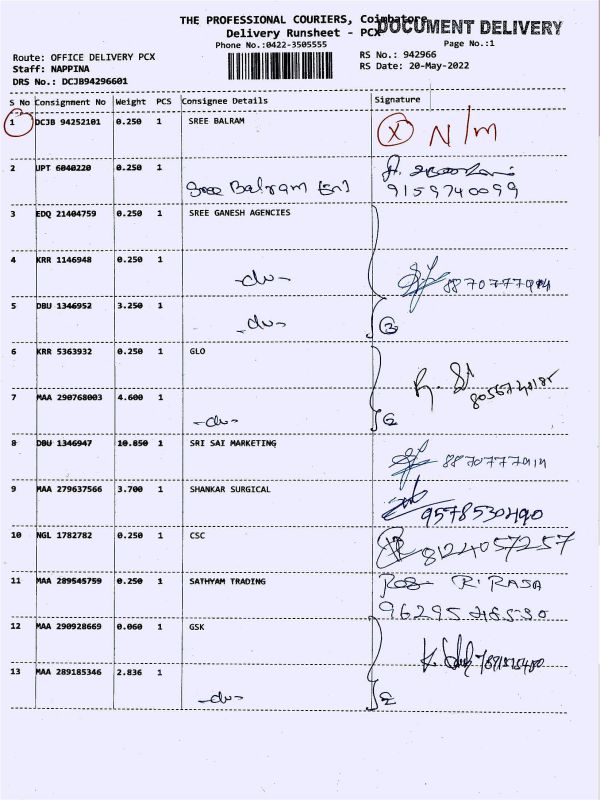 THE PROFESSIONAL COURIERS, Coimbatore
DOCUMENT DELIVERY
Delivery Runsheet - PCX
Phone No.:0422-3505555
Page No.:1
Route: OFFICE DELIVERY PCX
RS No.: 942966
Staff: NAPPINA
RS Date: 20-May-2022
DRS No.: DCJB94296601
S No Consignment No Weight PCS Consignee Details Signature
1 DCJB 94252101 0.250 1 SREE BALRAM X N/m
2 UPT 6040220 0.250 1 Sree Balram
9159740099
3 EDQ 21404759 0.250 1 SREE GANESH AGENCIES
4 KRR 1146948 0.250 1 -do-
5 DBU 1346952 3.250 1 -do- 3
6 KRR 5363932 0.250 1 GLO
7 MAA 290768003 4.600 1 -do-
8 DBU 1346947 10.850 1 SRI SAI MARKETING
9 MAA 279637566 3.700 1 SHANKAR SURGICAL
9578530490
10 NGL 1782782 0.250 1 CSC 8124057257
11 MAA 289545759 0.250 1 SATHYAM TRADING R. RAJA
12 MAA 290928669 0.060 1 GSK
13 MAA 289185346 2.836 1
-do-